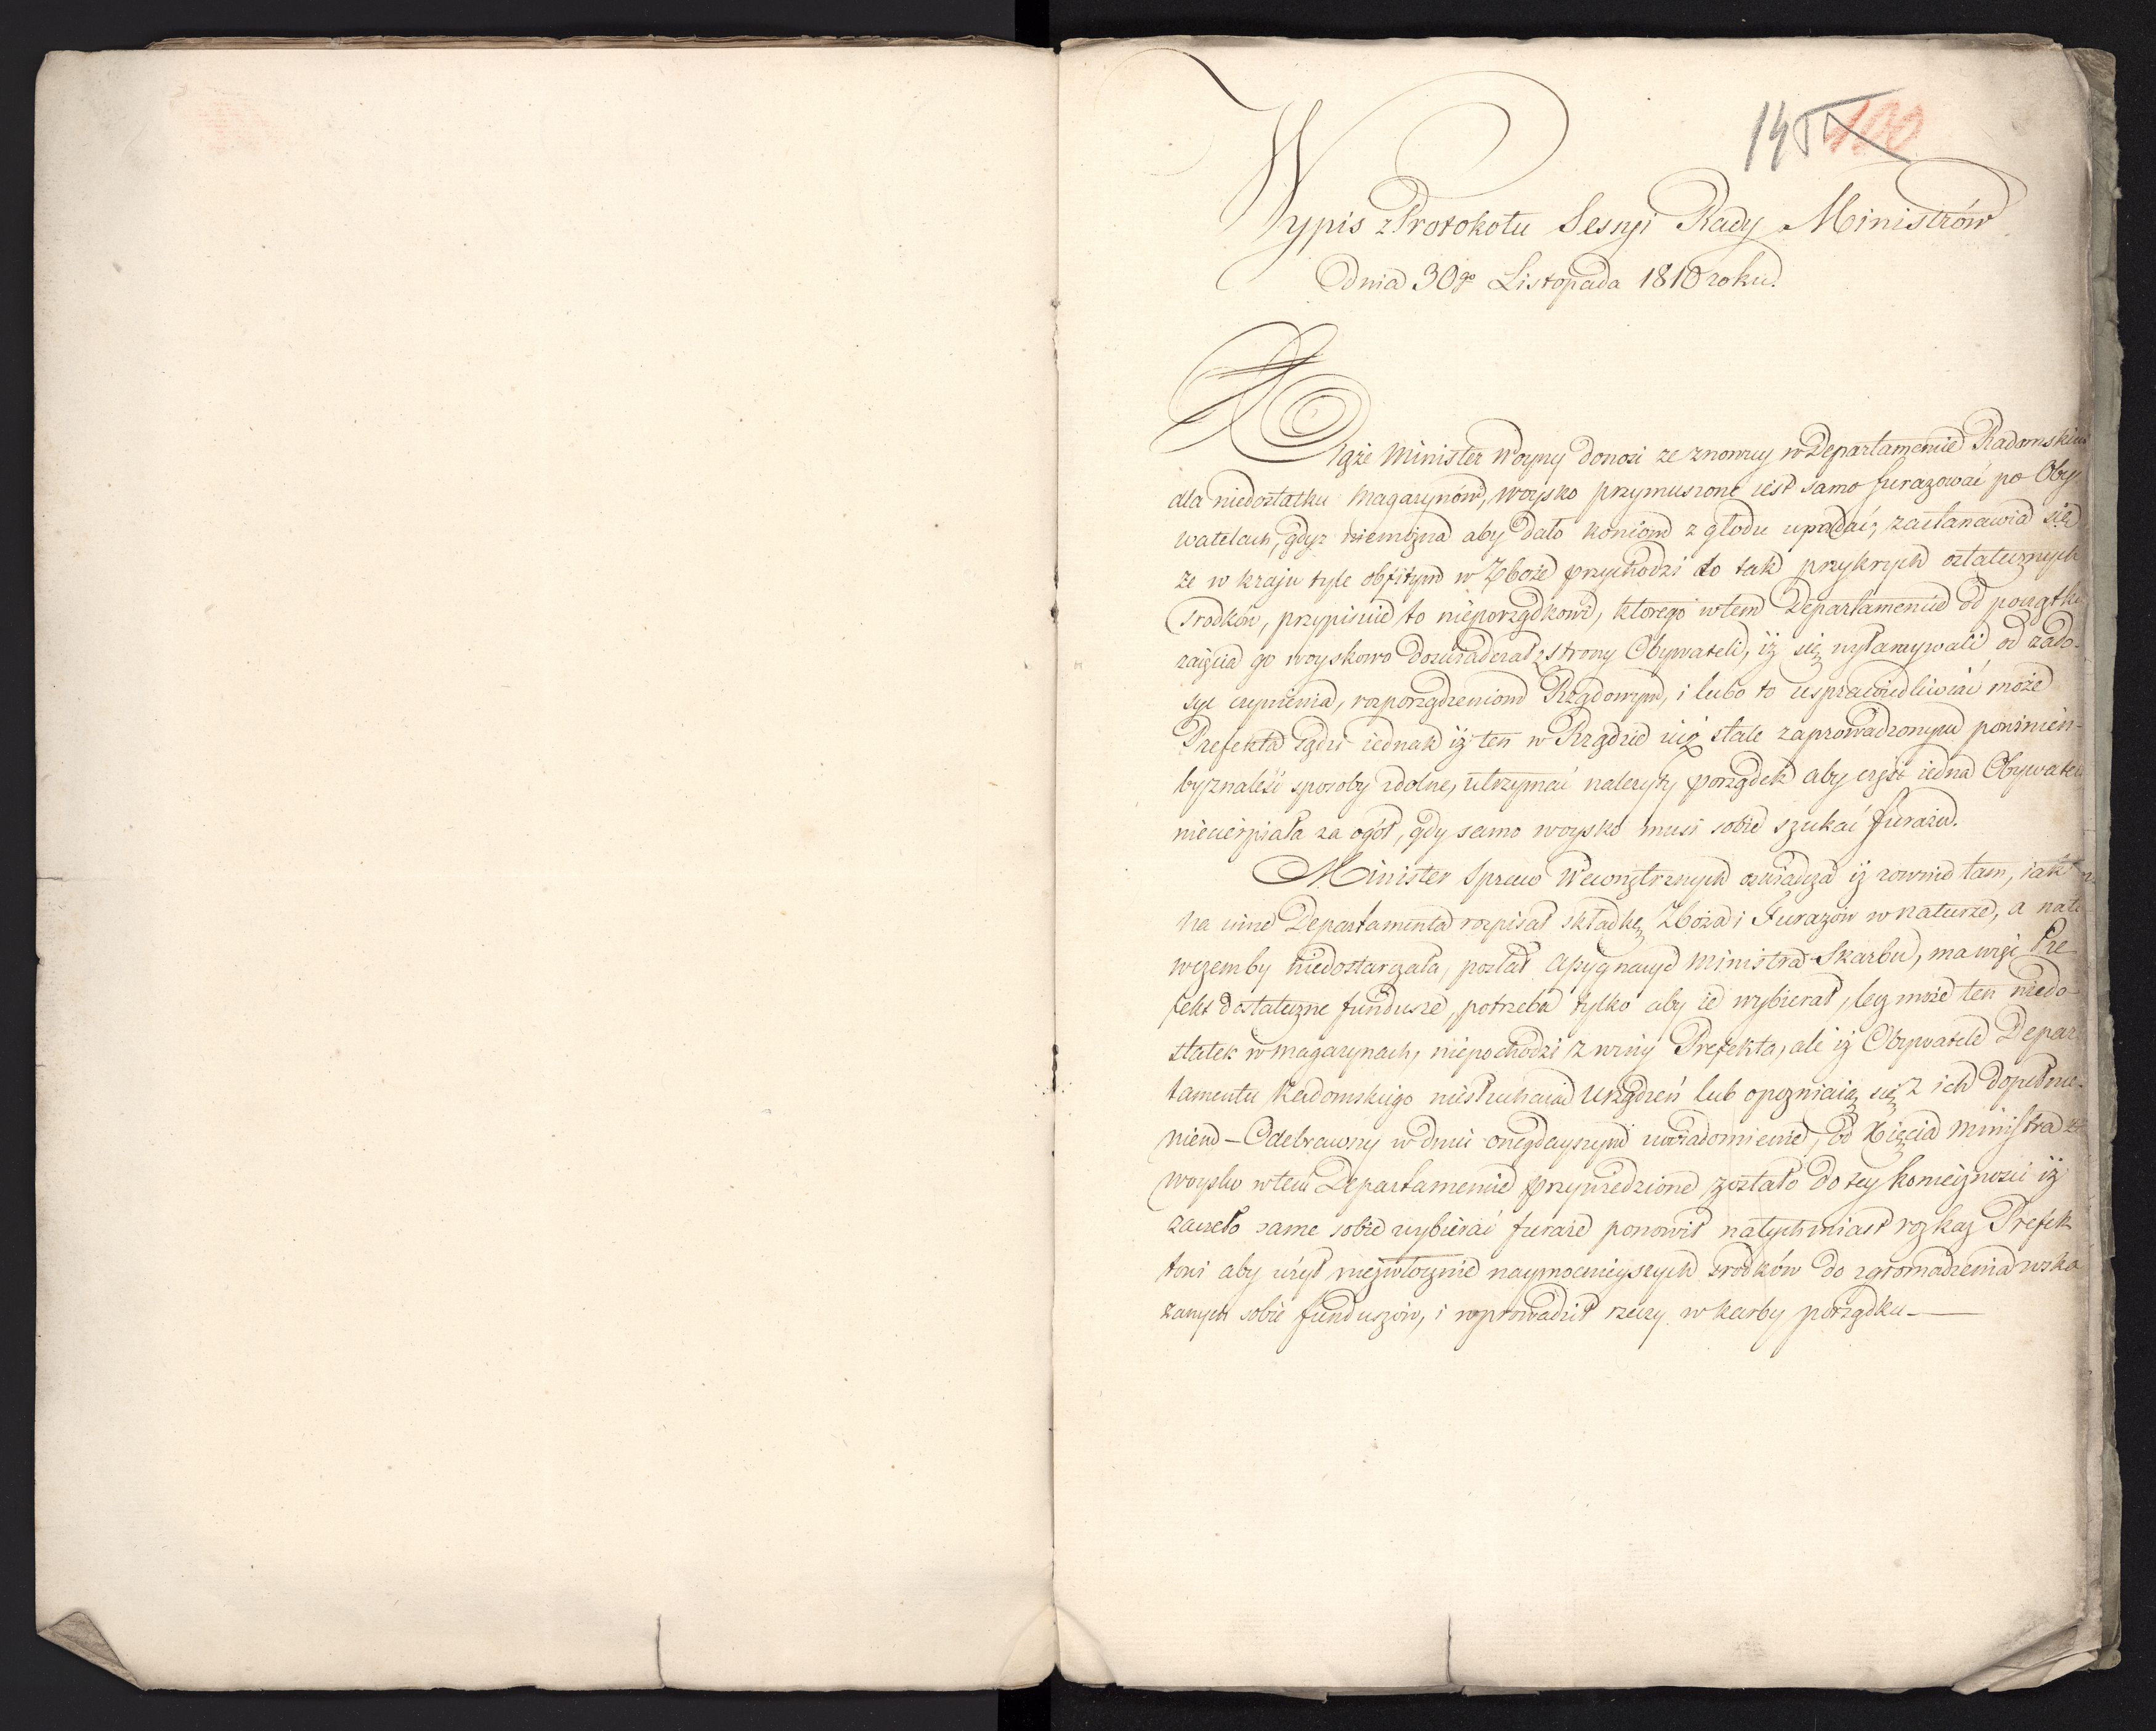 145 100
Wypis z Protokołu Sessyi Rady Ministrów
Dnia 30go Listopada 1810 roku.
Xgże Minister Woyny donosi ze znowuy w Departamencie Radomskim
dla niedostatku Magazynów, woysko przymuszone iest samo furazować po Oby-
watelach, gdyz niemożna aby dało koniom z głodu upadać, zastanawia się
ze w kraju tyle obfitym w Zboże przychodzi do tak przykrych ostatecznych
srodków, przypisuie to nieporządkowi, ktorego w tem Departamencie od początku
zaięcia go woyskowo doswiadczał z strony Obywateli, iż się wyłamywali od zado-
syc czynienia, rozporządzeniom Rządowym, i lubo to usprawiedliwiać może
Prefekta sądzi iednak iż ten w Rządzie iuż stale zaprowadzonym powinien-
by znaleść sposoby zdolne, utrzymać nalezyty porządek aby część iedna Obywateli
niecierpiała za ogół, gdy samo woysko musi sobie szukać furażu.
Minister Spraw Wewnętrznych oswiadcza iż rownie tam, iak
na inne Departamenta rozpisał składkę Zboża i Furazów w naturze, a na to
w czemby niedostarczała, posłał Assygnacye Ministra Skarbu, ma więc Pre
fekt dostateczne fundusze, potrzeba tylko aby ie wybierał, lecz może ten niedo-
statek w magazynach, niepochodzi z winy Prefekta, ale iż Obywatele Depar
tamentu Radomskiego niesłuchaią Urządzeń lub opozniaią się z ich dopełnie-
niem – Odebrawszy w dniu onegdayszym uwiadomienie, od Xięcia Ministra ze
woysko w tem Departamencie przywiedzione zostało do tey konieczności iż
zaczeło same sobie wybierać furaże ponowił natychmiast rozkaz Prefek
towi aby użył niezwłocznie naymocnieyszych srodków do zgromadzenia wska
zanych sobie funduszów, i wprowadził rzeczy w karby porządku –